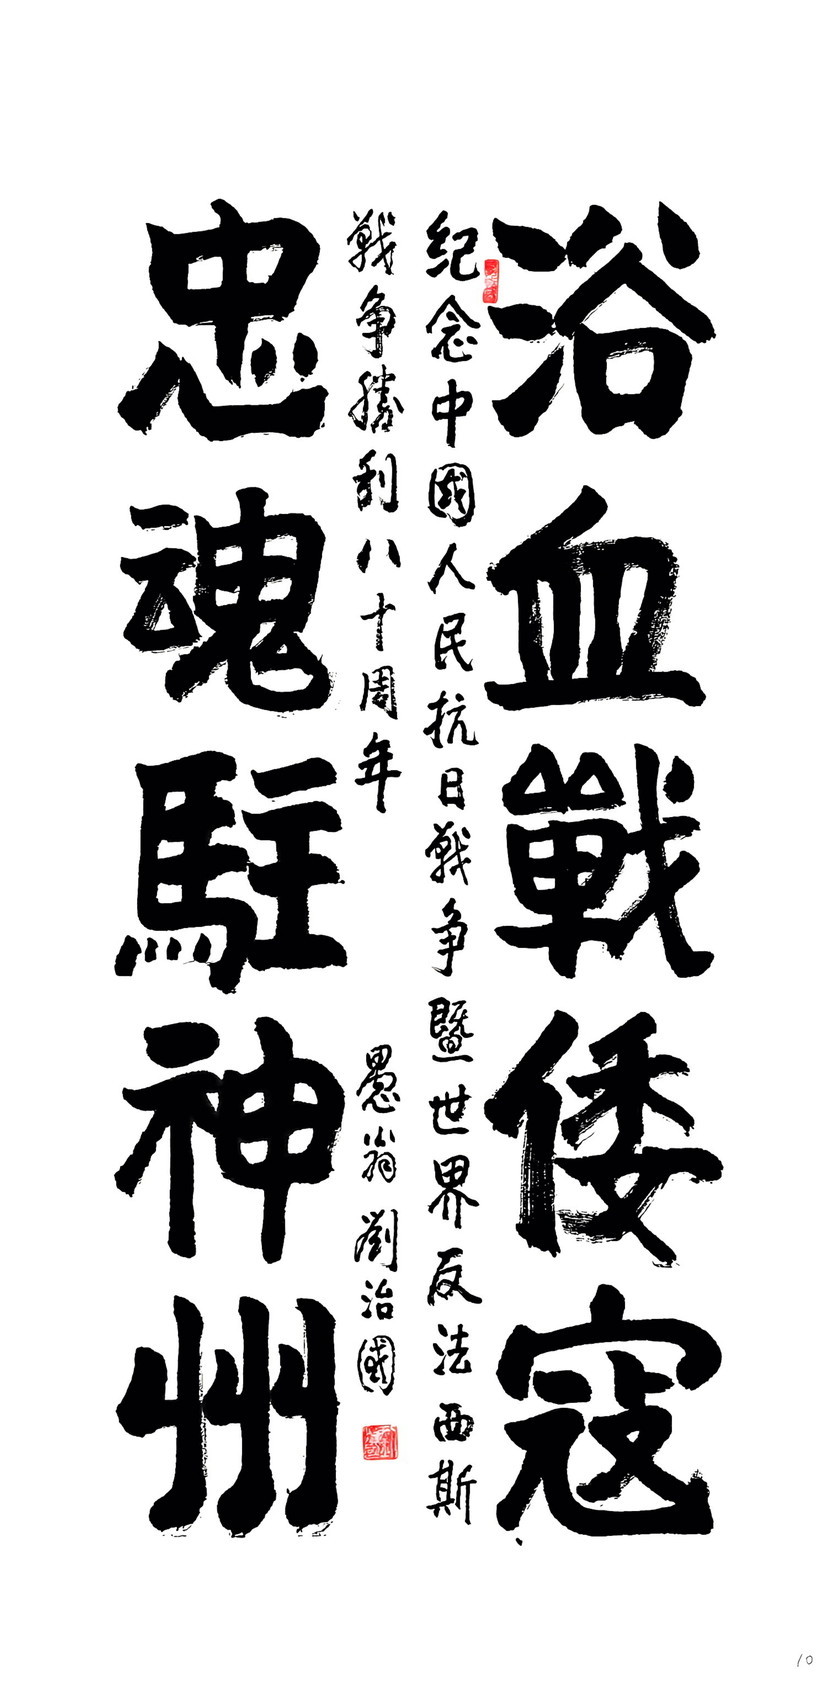 浴血戰倭寇
紀念中國人民抗日戰争暨世界反法西斯
戰争勝利八十周年
愚翁劉治國
忠魂駐神州
10